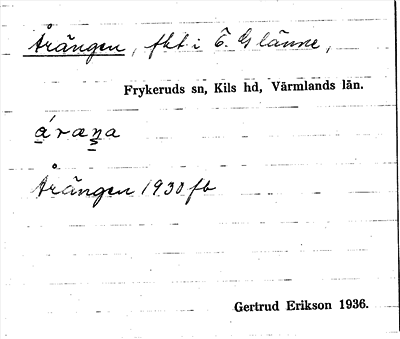 Årängen, fht i Ö. Glänne,
Frykeruds sn, Kils hd, Värmlands län.
áræŋa
Årängen 1930 fb
Gertrud Erikson 1936.